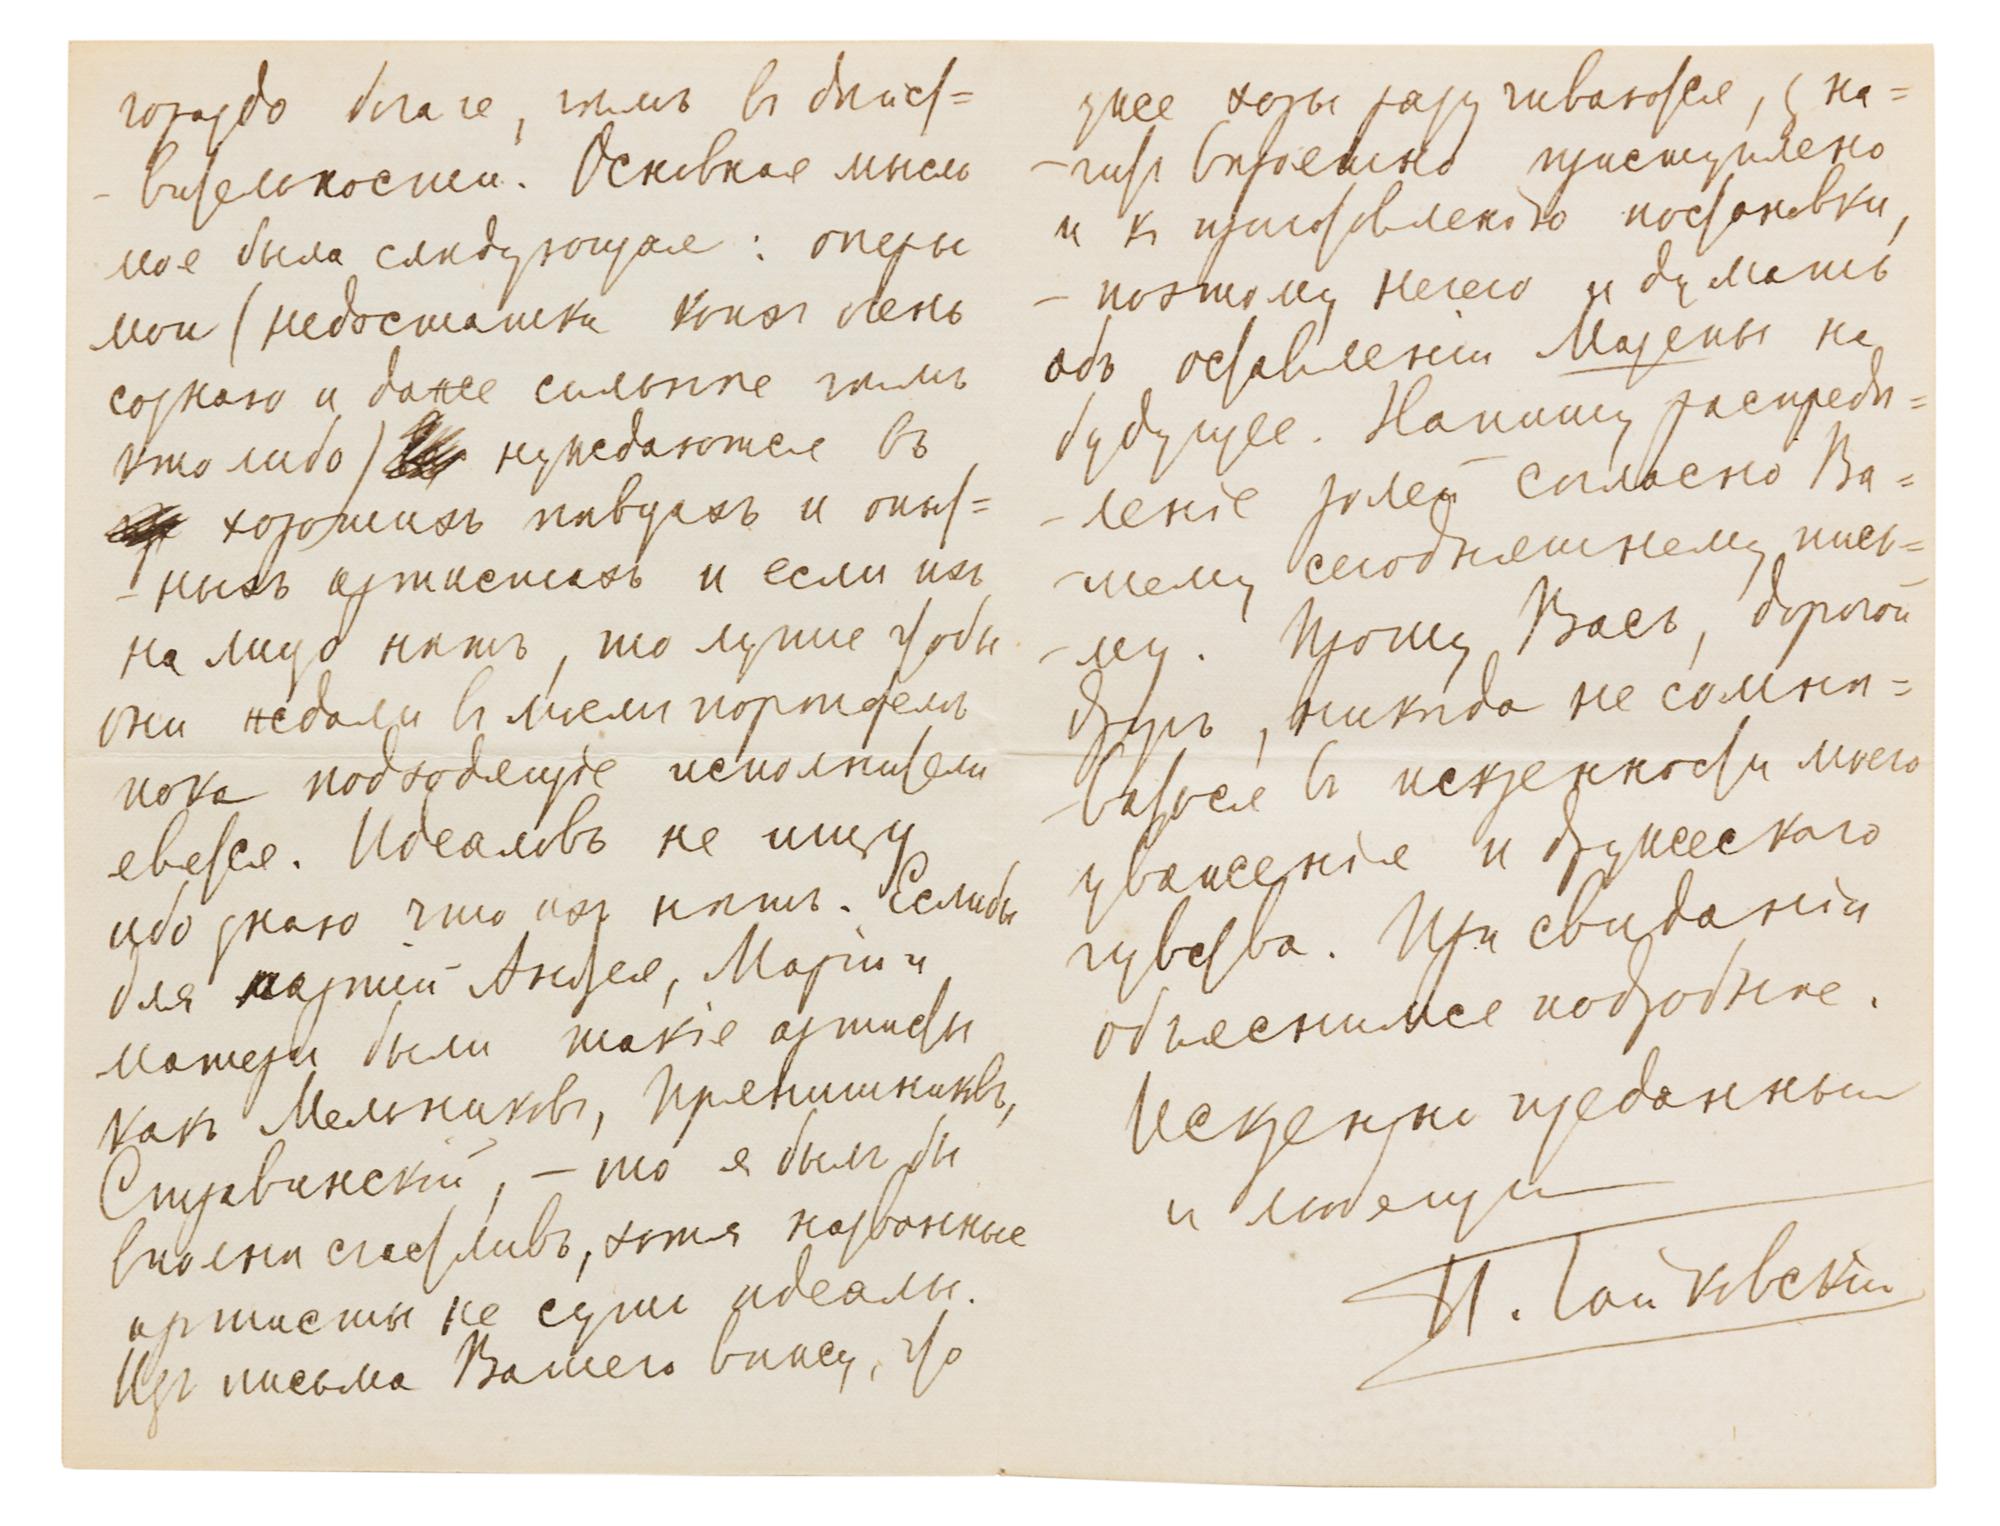 гораздо богаче, чѣмъ въ дѣйст=
-вительности. Основная мысль
моя была слѣдующая: оперы
мои (недостатки коихъ очень
сознаю и даже сильнѣе чѣмъ
кто либо) нуждаются въ
хорошихъ пѣвцахъ и опыт=
-ныхъ артистахъ и если ихъ
на лицо нѣтъ, то лучше чтобы
они ждали въ моемъ портфелѣ
пока подходящіе исполнители
явятся. Идеаловъ не ищу
ибо знаю что ихъ нѣтъ. Еслибы
для партій Андрея, Маріи и
матери были такіе артисты
какъ Мельниковъ, Прянишниковъ,
Стравинскій, – то я былъ бы
вполнѣ счастливъ, хотя названные
артисты не суть идеалы.
Изъ письма Вашего вижу, что
уже хоры разучиваются, зна=
-читъ вѣроятно приступлено
и къ приготовленію постановки,
– поэтому нечего и думать
объ оставленіи Мазепы на
будущее. Напишу распредѣ=
-леніе ролей согласно Ва=
-шему сегодняшнему пись=
-му. Прошу Васъ, дорогой
другъ, никогда не сомнѣ=
-ваться въ искренности моего
уваженія и дружескаго
чувства. При свиданіи
объяснимся подробнѣе.
Искренно преданный
и любящій
П. Чайковскій